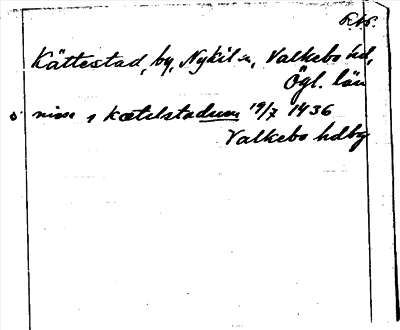 Kättestad, by, Nykil sn, Valkebo hd,
Ögl. län
nisse i Kætelstadum 19/7 1436
Valkebo hdbg